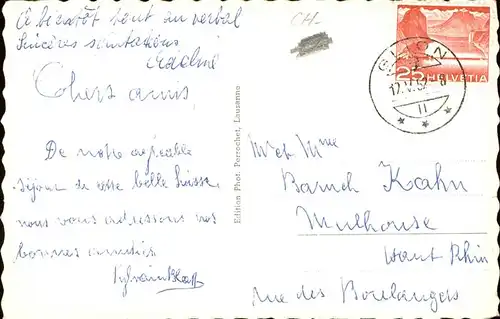 A bientôt tout au verbal
Sincères salutations
Chers amis,
De notre agréable
séjour de cette belle Suisse,
nous vous adressons nos
bonnes amitiés
Sylvain
CH-
GLION
12.V.52-8
11
25 HELVETIA
Edition Phot. Perrochet, Lausanne
M et Mme
Baruch Kahn
Mulhouse
Haut Rhin
rue des Boulangers